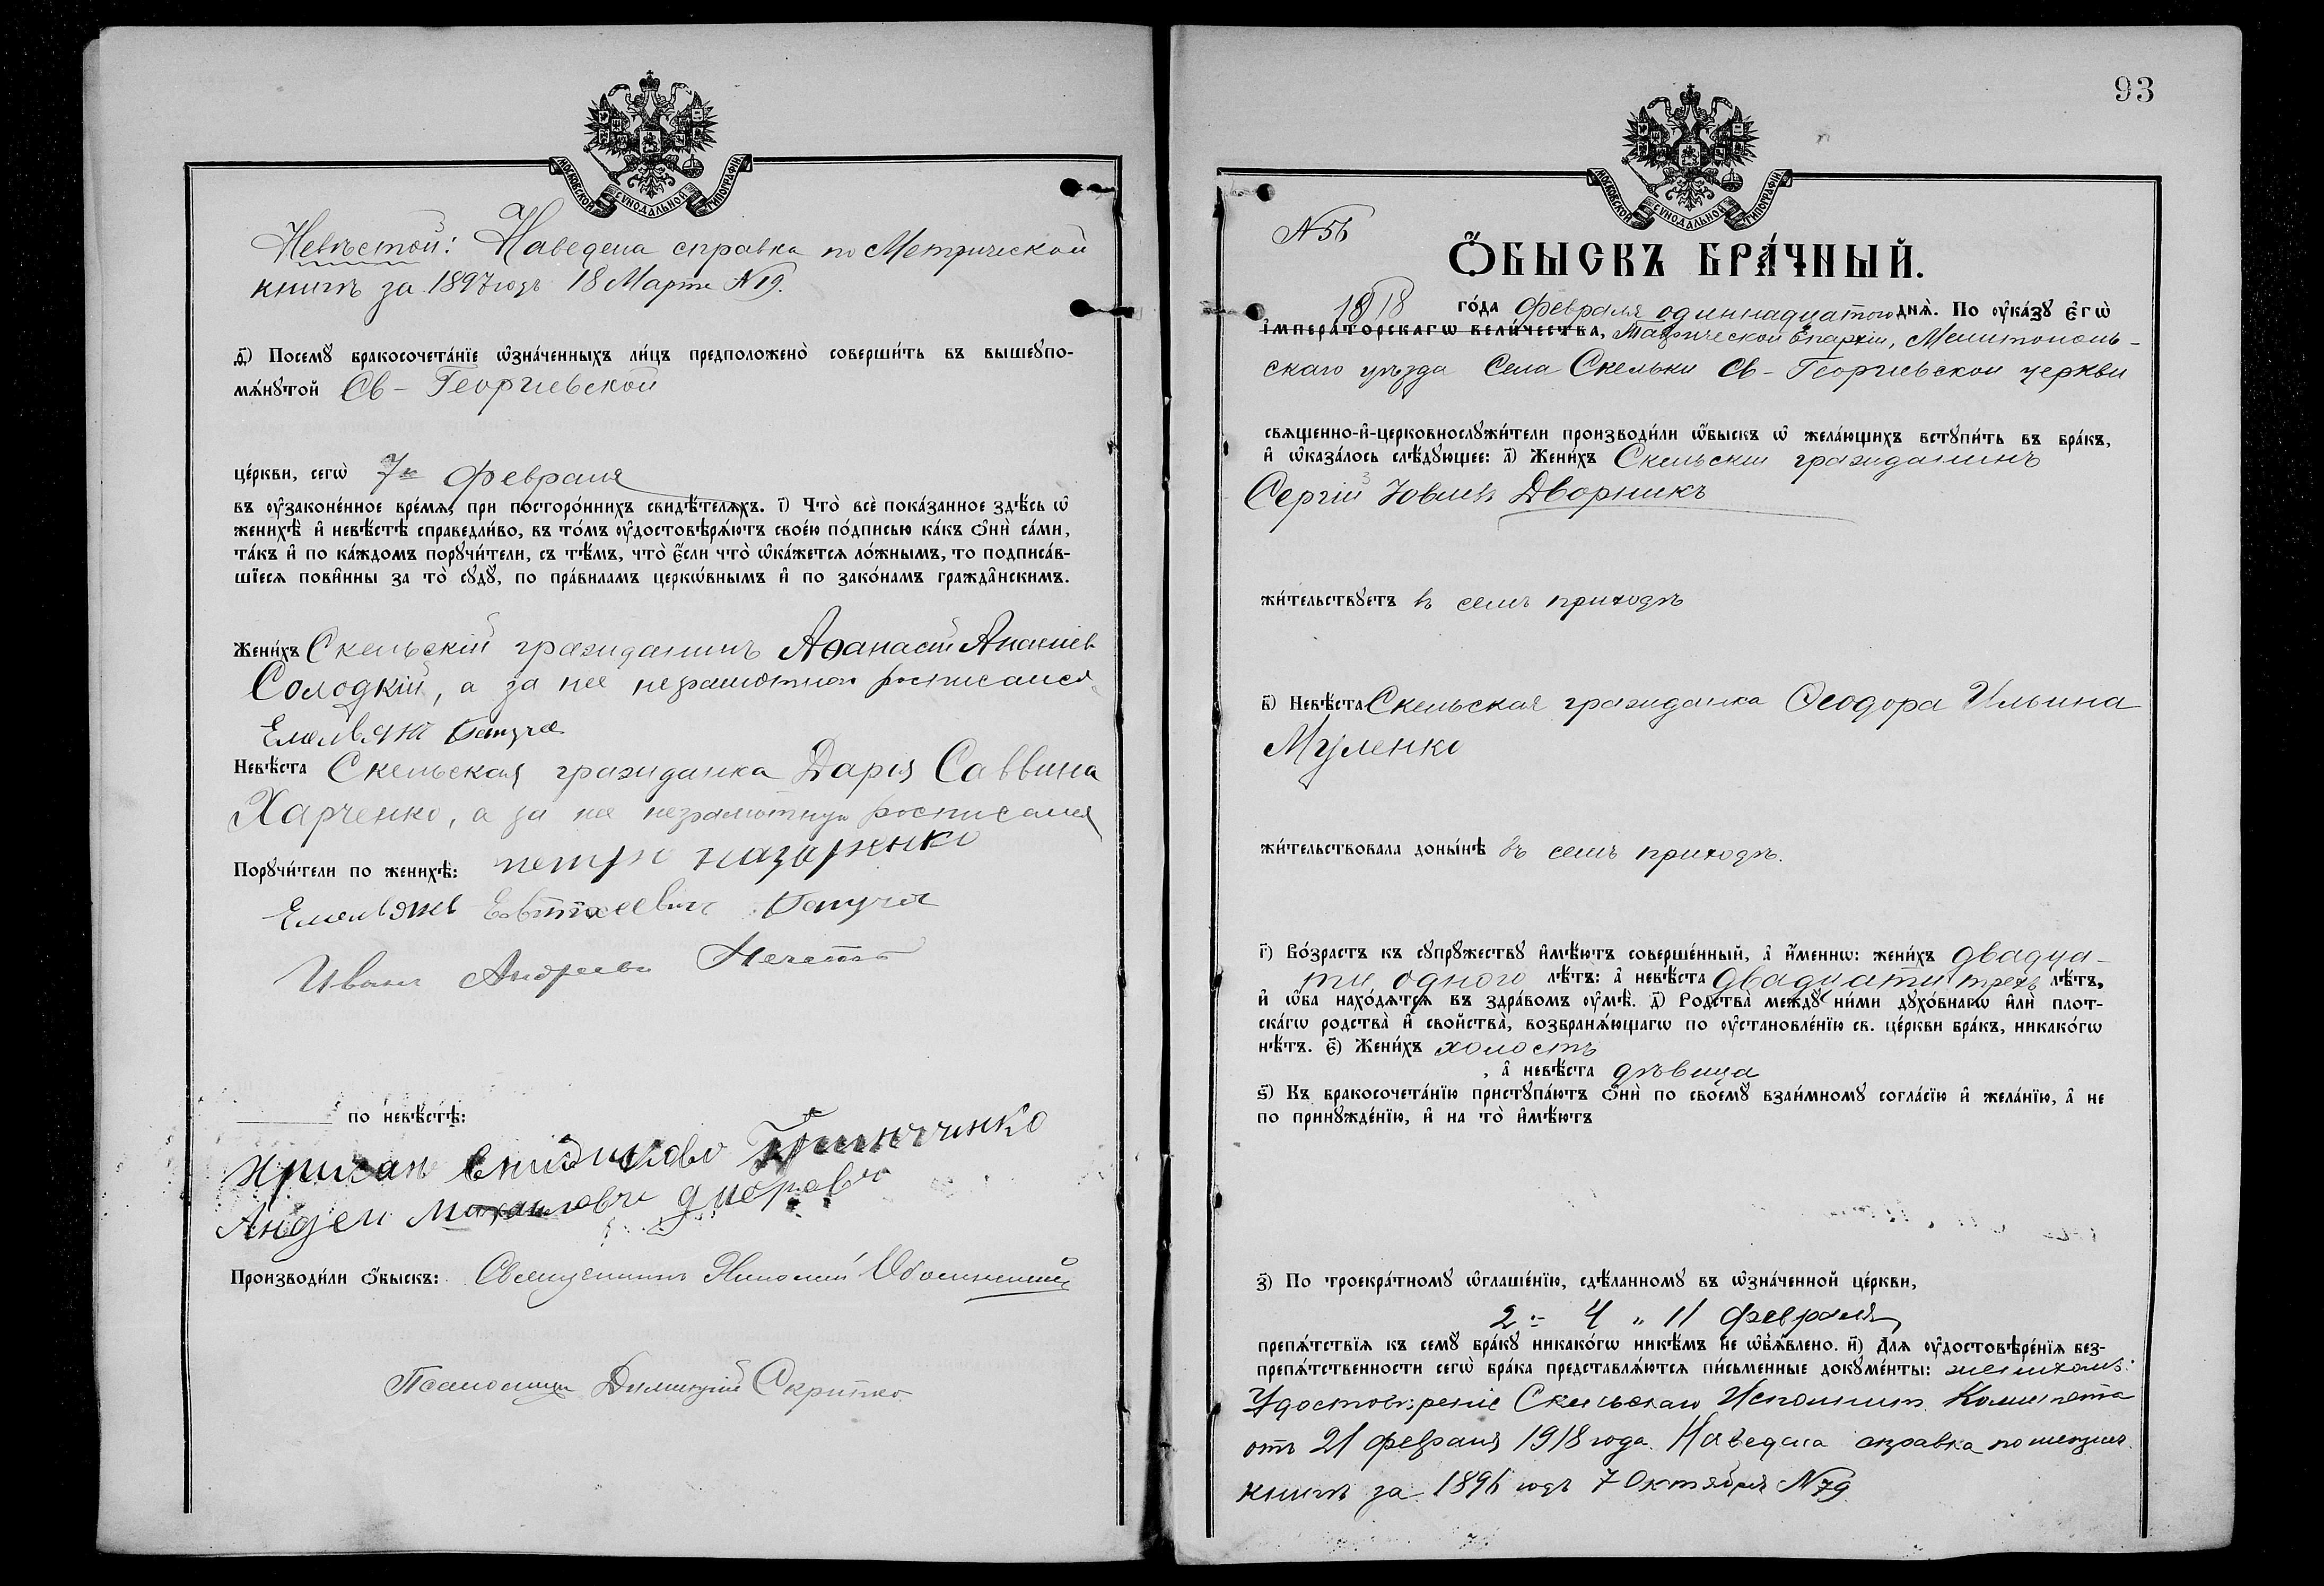 МОСКОВСКОЙ СѴНОДАЛЬНОЙ ТИПОГРАФІИ
Невѣстой: Наведена справка по Метрической
книгѣ за 1897 годъ 18 Марта №19.
ѳ҃) Посемꙋ бракосочета́нїе ѡ҆зна́ченныхъ ли́цъ предположено̀ соверши́ть въ вышеꙋпо-
мѧ́нꙋтой Св-Георгіевской
це́ркви, сегѡ̀ 7го Февраля
въ ᲂу҆законе́нное вре́мѧ, при посторо́ннихъ свидѣ́телѧхъ. і҃) Что̀ всѐ пока́занное здѣ́сь ѡ҆
женихѣ̀ и҆ невѣ́стѣ справедли́во, въ то́мъ ᲂу҆достовѣрѧ́ютъ свое́ю по́дписью ка́къ ѻ҆нѝ са́ми,
та́къ и҆ по ка́ждомъ порꙋчи́тели, съ тѣ́мъ, что̀ є҆́сли что̀ ѡ҆ка́жется ло́жнымъ, то подписа́в-
шїеся пови́нны за то̀ сꙋдꙋ̀, по пра́виламъ церкѡ́внымъ и҆ по зако́намъ гражда́нскимъ.
Жени́хъ Скельскій гражданинъ Аѳанасій Ананіев
Солодкій, а за нее неграмотнаго росписался
Емельянъ
Невѣ́ста Скельская гражданка Дарія Саввина
Харченко, а за нее неграмотную росписался
Порꙋчи́тели по женихѣ̀: петро назаренко
Емельянъ Евтихеевичъ
Иванъ Андреевъ
по невѣ́стѣ:
Андреи Михаиловъ
Производи́ли ѻ҆́быскъ: Священникъ Николай
Псаломщикъ Димитрій Скрипко
93
МОСКОВСКОЙ СѴНОДАЛЬНОЙ ТИПОГРАФІИ
№56
Ѻ҆́БЫСКЪ БРА́ЧНЫЙ.
1918 го́да Февраля одиннадцатого днѧ̀. По ᲂу҆ка́зꙋ є҆гѡ̀
і҆мпера́торскагѡ вели́чества, Таврической Епархіи, Мелитополь-
скаго уѣзда Села Скельки Св-Георгіевской церкви
священно-и҆-церковнослꙋжи́тели производи́ли ѡ҆́быскъ ѡ҆ жела́ющихъ вступи́ть въ бра́къ,
и҆ ѡ҆каза́лось слѣ́дꙋющее: а҃) Жени́хъ Скельскій гражданинъ
Сергій Іовлевъ Дворникъ
жи́тельствꙋетъ въ семъ приходѣ
в҃) Невѣ́ста Скельская гражданка Ѳеодора Ильина
Муленко
жи́тельствовала доны́нѣ въ семъ приходѣ.
г҃) Во́зрастъ къ сꙋпрꙋжествꙋ и҆мѣ́ютъ соверше́нный, а҆ и҆́меннѡ: жени́хъ двадца-
ти одного лѣ́тъ: а҆ невѣ́ста двадцати трехъ лѣ́тъ,
и҆ ѡ҆́ба нахо́дѧтсѧ въ здра́вомъ ᲂу҆мѣ̀. д҃) Родства̀ междꙋ̀ ни́ми дꙋхо́внагѡ и҆лѝ плот-
ска́гѡ родства̀ и҆ сво́йства̀, возбранѧ́ющагѡ по ᲂу҆становле́нїю св. це́ркви бра́къ, никако́гѡ
нѣ́тъ. є҃) Жени́хъ холостъ
, а҆ невѣ́ста дѣвица
ѕ҃) Къ бракосочета́нїю пристꙋпа́ютъ ѻ҆нѝ по своемꙋ̀ взаи́мномꙋ согла́сїю и҆ жела́нїю, а҆ не
по принꙋжде́нїю, и҆ на то̀ и҆мѣ́ютъ
з҃) По троекра́тномꙋ ѡ҆глаше́нїю, сдѣ́ланномꙋ въ ѡ҆зна́ченной це́ркви,
2 - 4 " 11 Февраля
препѧ́тствїѧ къ семꙋ̀ бра́кꙋ никако́гѡ никѣ́мъ не ѡ҆б̾ѧ́влено. и҃) Длѧ ᲂу҆достовѣре́нїѧ без-
препѧ́тственности сегѡ̀ бра́ка представлѧ́ютсѧ пи́сьменные докꙋме́нты: женихомъ:
Удостовѣреніе Скельскаго Исполнит. Комитета
отъ 21 февраля 1918 года. Наведена справка по метрич.
книгѣ за 1896 годъ 7 Октября №79